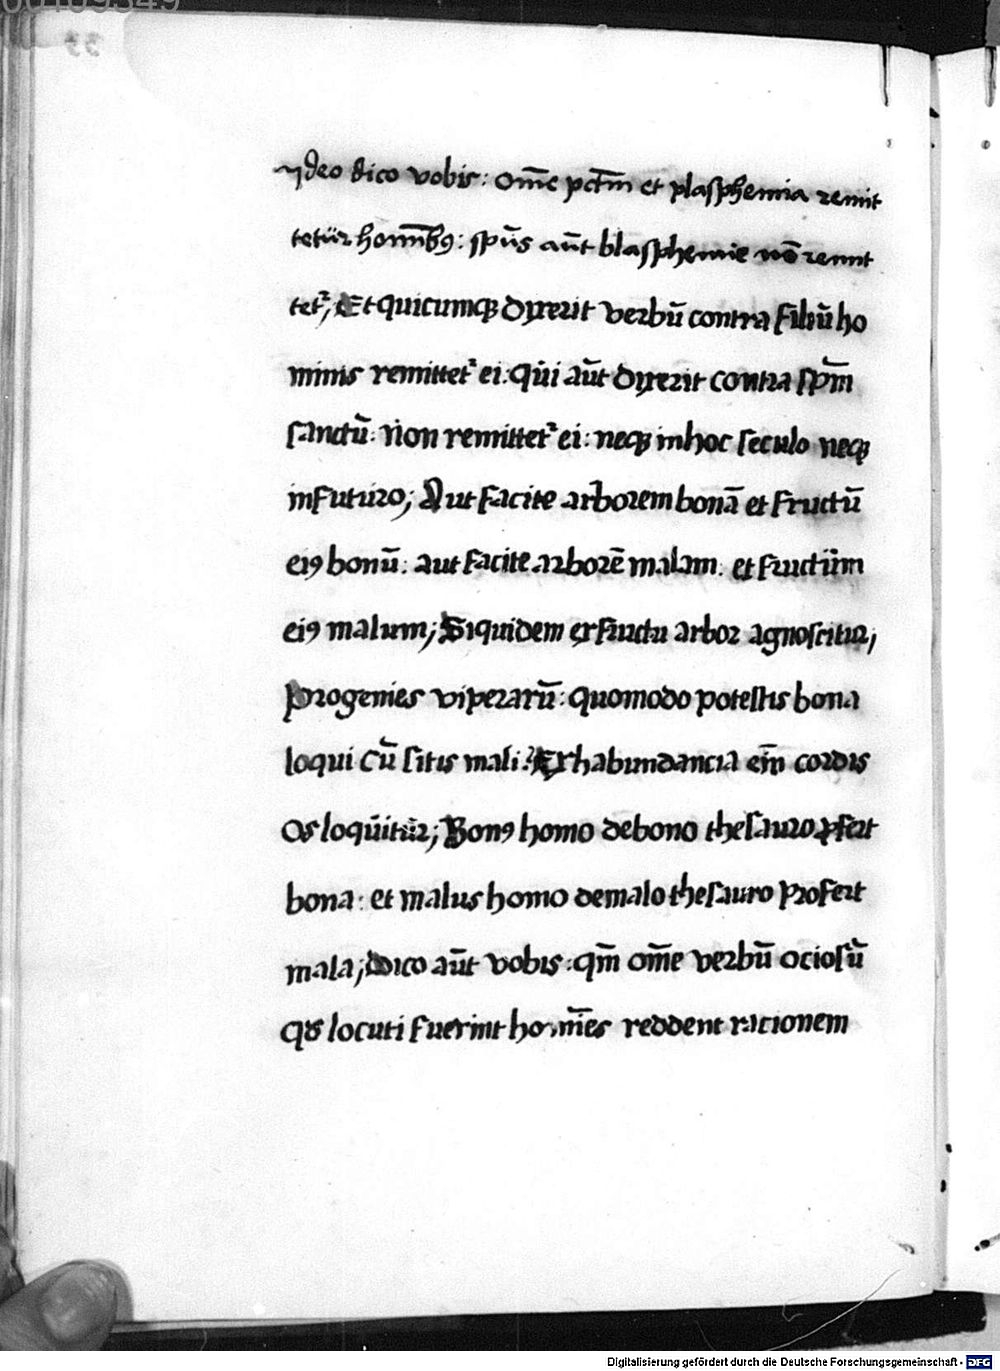 ydeo dico vobis: om̅e pct̅m et plasphemia remit
tetur homi̅bꝰ: sp̅us au̅t blasphemie no̅ remit
tet᷑; Et quicumqꝫ dixerit verbu̅ contra filiu̅ ho
minis remittet᷑ ei: qui au̅t dixerit contra sp̅m
sanctu̅: non remittet᷑ ei: neqꝫ in hoc seculo neqꝫ
in futuro; Aut facite arborem bona̅ et fructu̅
eiꝰ bonu̅: aut facite arbore̅ malam: et fructum
eiꝰ malum; Siquidem ex fructu arbor agnoscitur;
Progenies viperaru̅: quomodo potestis bona
loqui cu̅ sitis mali? Ex habundancia ei̅m cordis
Os loquitur; Bonꝰ homo de bono thesauro ꝓfert
bona: et malus homo de malo thesauro profert
mala; Dico au̅t vobis: qm̅ om̅e verbu̅ ociosu̅
qđ locuti fuerint homi̅es reddent racionem
Digitalisierung gefördert durch die Deutsche Forschungsgemeinschaft - DFG